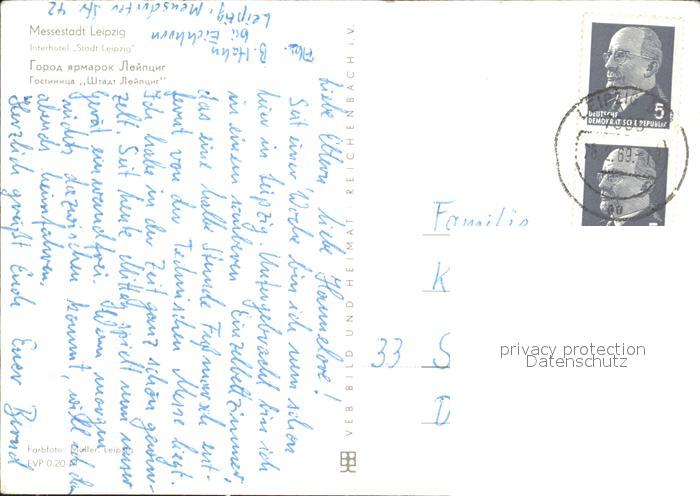 Messestadt Leipzig
Interhotel „Stadt Leipzig"
Город ярмарок Лейпциг
Гостиница ,,Штадт Лейпциг"
Abs. B. Hahn
bei Eichhorn
Leipzig, Meusdorfer Str. 42
Liebe Eltern, liebe Hannelore!
Seit einer Woche bin ich nun schon
hier in Leipzig. Untergebracht bin ich
in einem sauberen Einzelbettzimmer,
das eine halbe Stunde Fußmarsch ent-
fernt von der Technischen Messe liegt.
Ich habe in der Zeit ganz schön gewirn-
zelt. Seit heute Mittag spielt nun unser
Gerät einwandfrei. Wenn morgen
nichts dazwischen kommt, will ich dann
abends heimfahren.
Herzlich grüßt Euch Euer Bernd
Farbfoto: Müller, Leipzig
EVP 0.20 M
VEB BILD UND HEIMAT REICHENBACH I.V.
5
DEUTSCHE
DEMOKRATISCHE REPUBLIK
LEIPZIG
69
Familie
K
33 S
D
privacy protection
Datenschutz